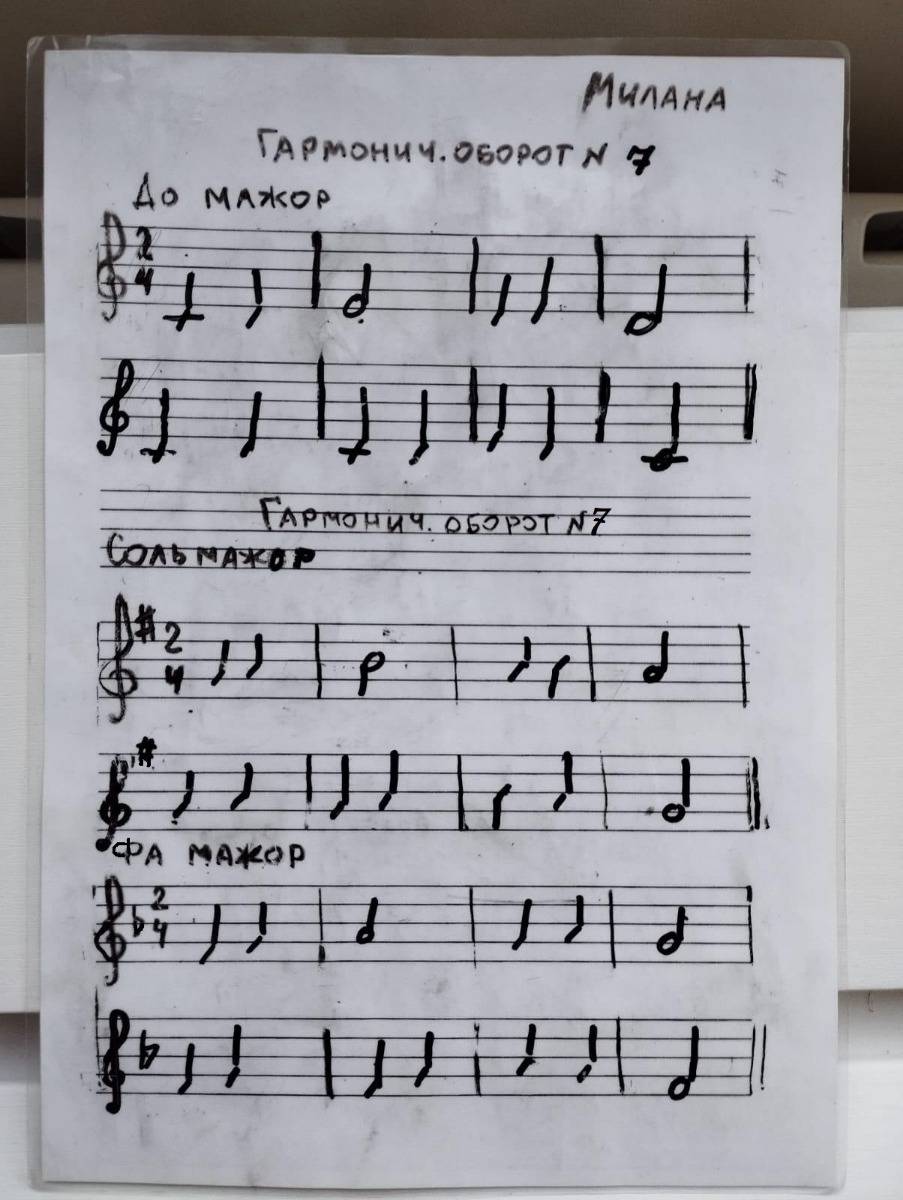 Милана
Гармонич. оборот N 7
До мажор
2
4
Гармонич. оборот N7
Соль мажор
2
4
Фа мажор
2
4